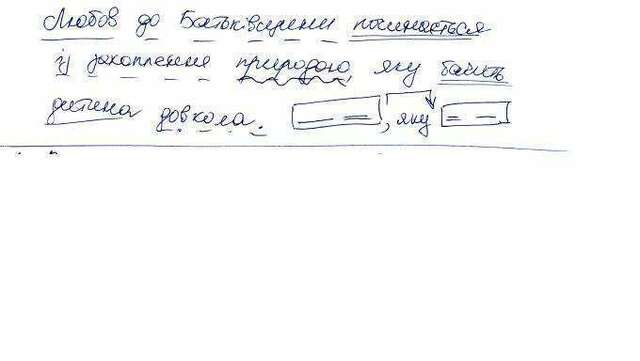 Любов до Батьківщини починається
із захоплення природою, яку бачить
дитина довкола. , яку